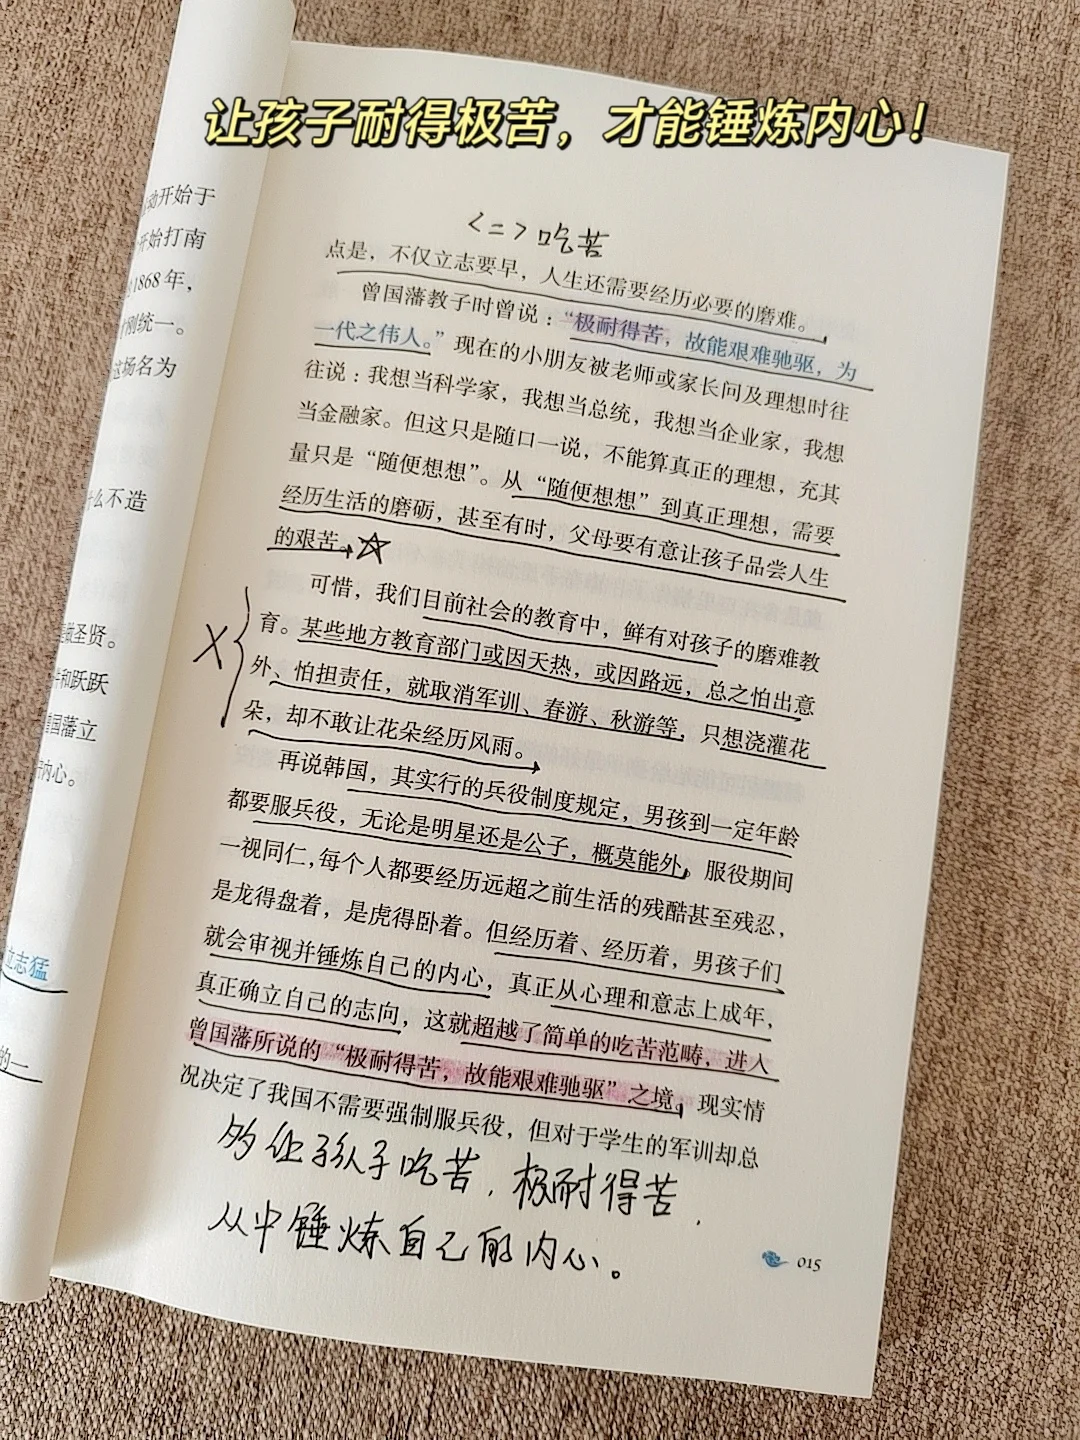 让孩子耐得极苦，才能锤炼内心！
动开始于
开始打南
1868年，
刚统一。
这场名为
什么不造
圣贤。
和跃跃
曾国藩立
内心。
立志猛
的一
<二>吃苦
点是，不仅立志要早，人生还需要经历必要的磨难。
曾国藩教子时曾说：“极耐得苦，故能艰难驰驱，为
一代之伟人。”现在的小朋友被老师或家长问及理想时往
往说：我想当科学家，我想当总统，我想当企业家，我想
当金融家。但这只是随口一说，不能算真正的理想，充其
量只是“随便想想”。从“随便想想”到真正理想，需要
经历生活的磨砺，甚至有时，父母要有意让孩子品尝人生
的艰苦。
可惜，我们目前社会的教育中，鲜有对孩子的磨难教
育。某些地方教育部门或因天热，或因路远，总之怕出意
外、怕担责任，就取消军训、春游、秋游等，只想浇灌花
朵，却不敢让花朵经历风雨。
再说韩国，其实行的兵役制度规定，男孩到一定年龄
都要服兵役，无论是明星还是公子，概莫能外。服役期间
一视同仁，每个人都要经历远超之前生活的残酷甚至残忍，
是龙得盘着，是虎得卧着。但经历着、经历着，男孩子们
就会审视并锤炼自己的内心，真正从心理和意志上成年，
真正确立自己的志向，这就超越了简单的吃苦范畴，进入
曾国藩所说的“极耐得苦，故能艰难驰驱”之境。现实情
况决定了我国不需要强制服兵役，但对于学生的军训却总
多让孩子吃苦，极耐得苦，
从中锤炼自己的内心。
015